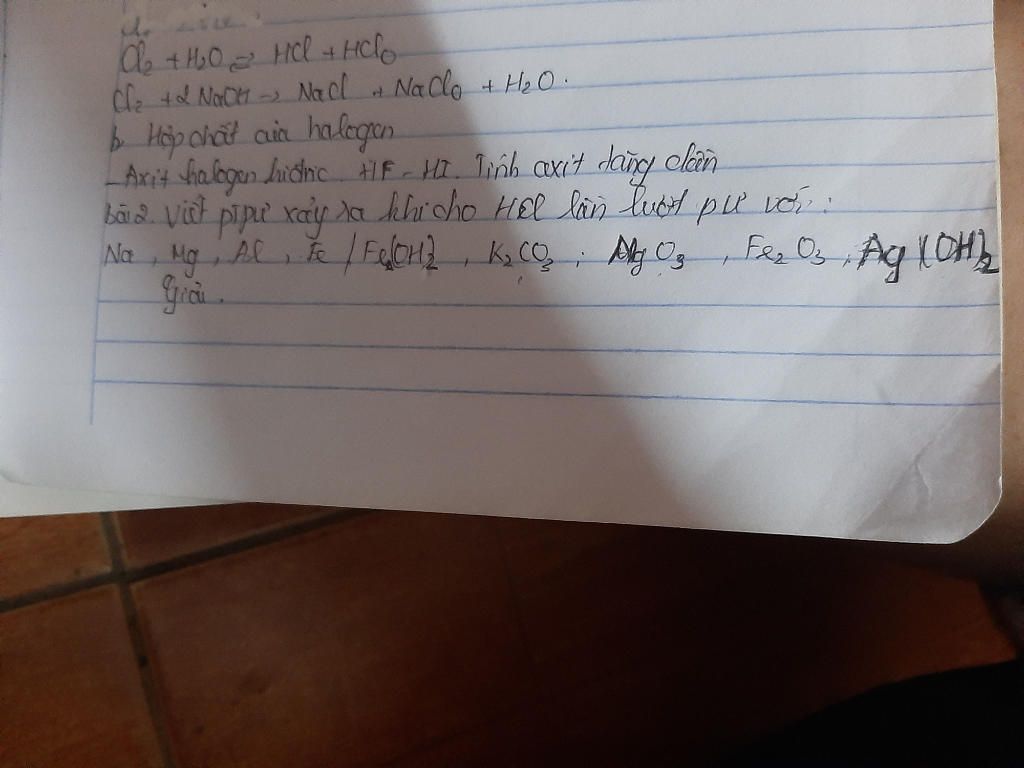 Cl₂ + H₂O ⇌ HCl + HClO
Cl₂ + 2 NaOH → NaCl + NaClO + H₂O.
b, Hợp chất của halogen
- Axit halogen hiđric HF - HI. Tính axit tăng dần
bài 2. Viết ptpư xảy ra khi cho HCl lần lượt pư với:
Na, Mg, Al, Fe / Fe(OH)₂, K₂CO₃; MgO₃, Fe₂O₃; Ag(OH)₂
Giải.